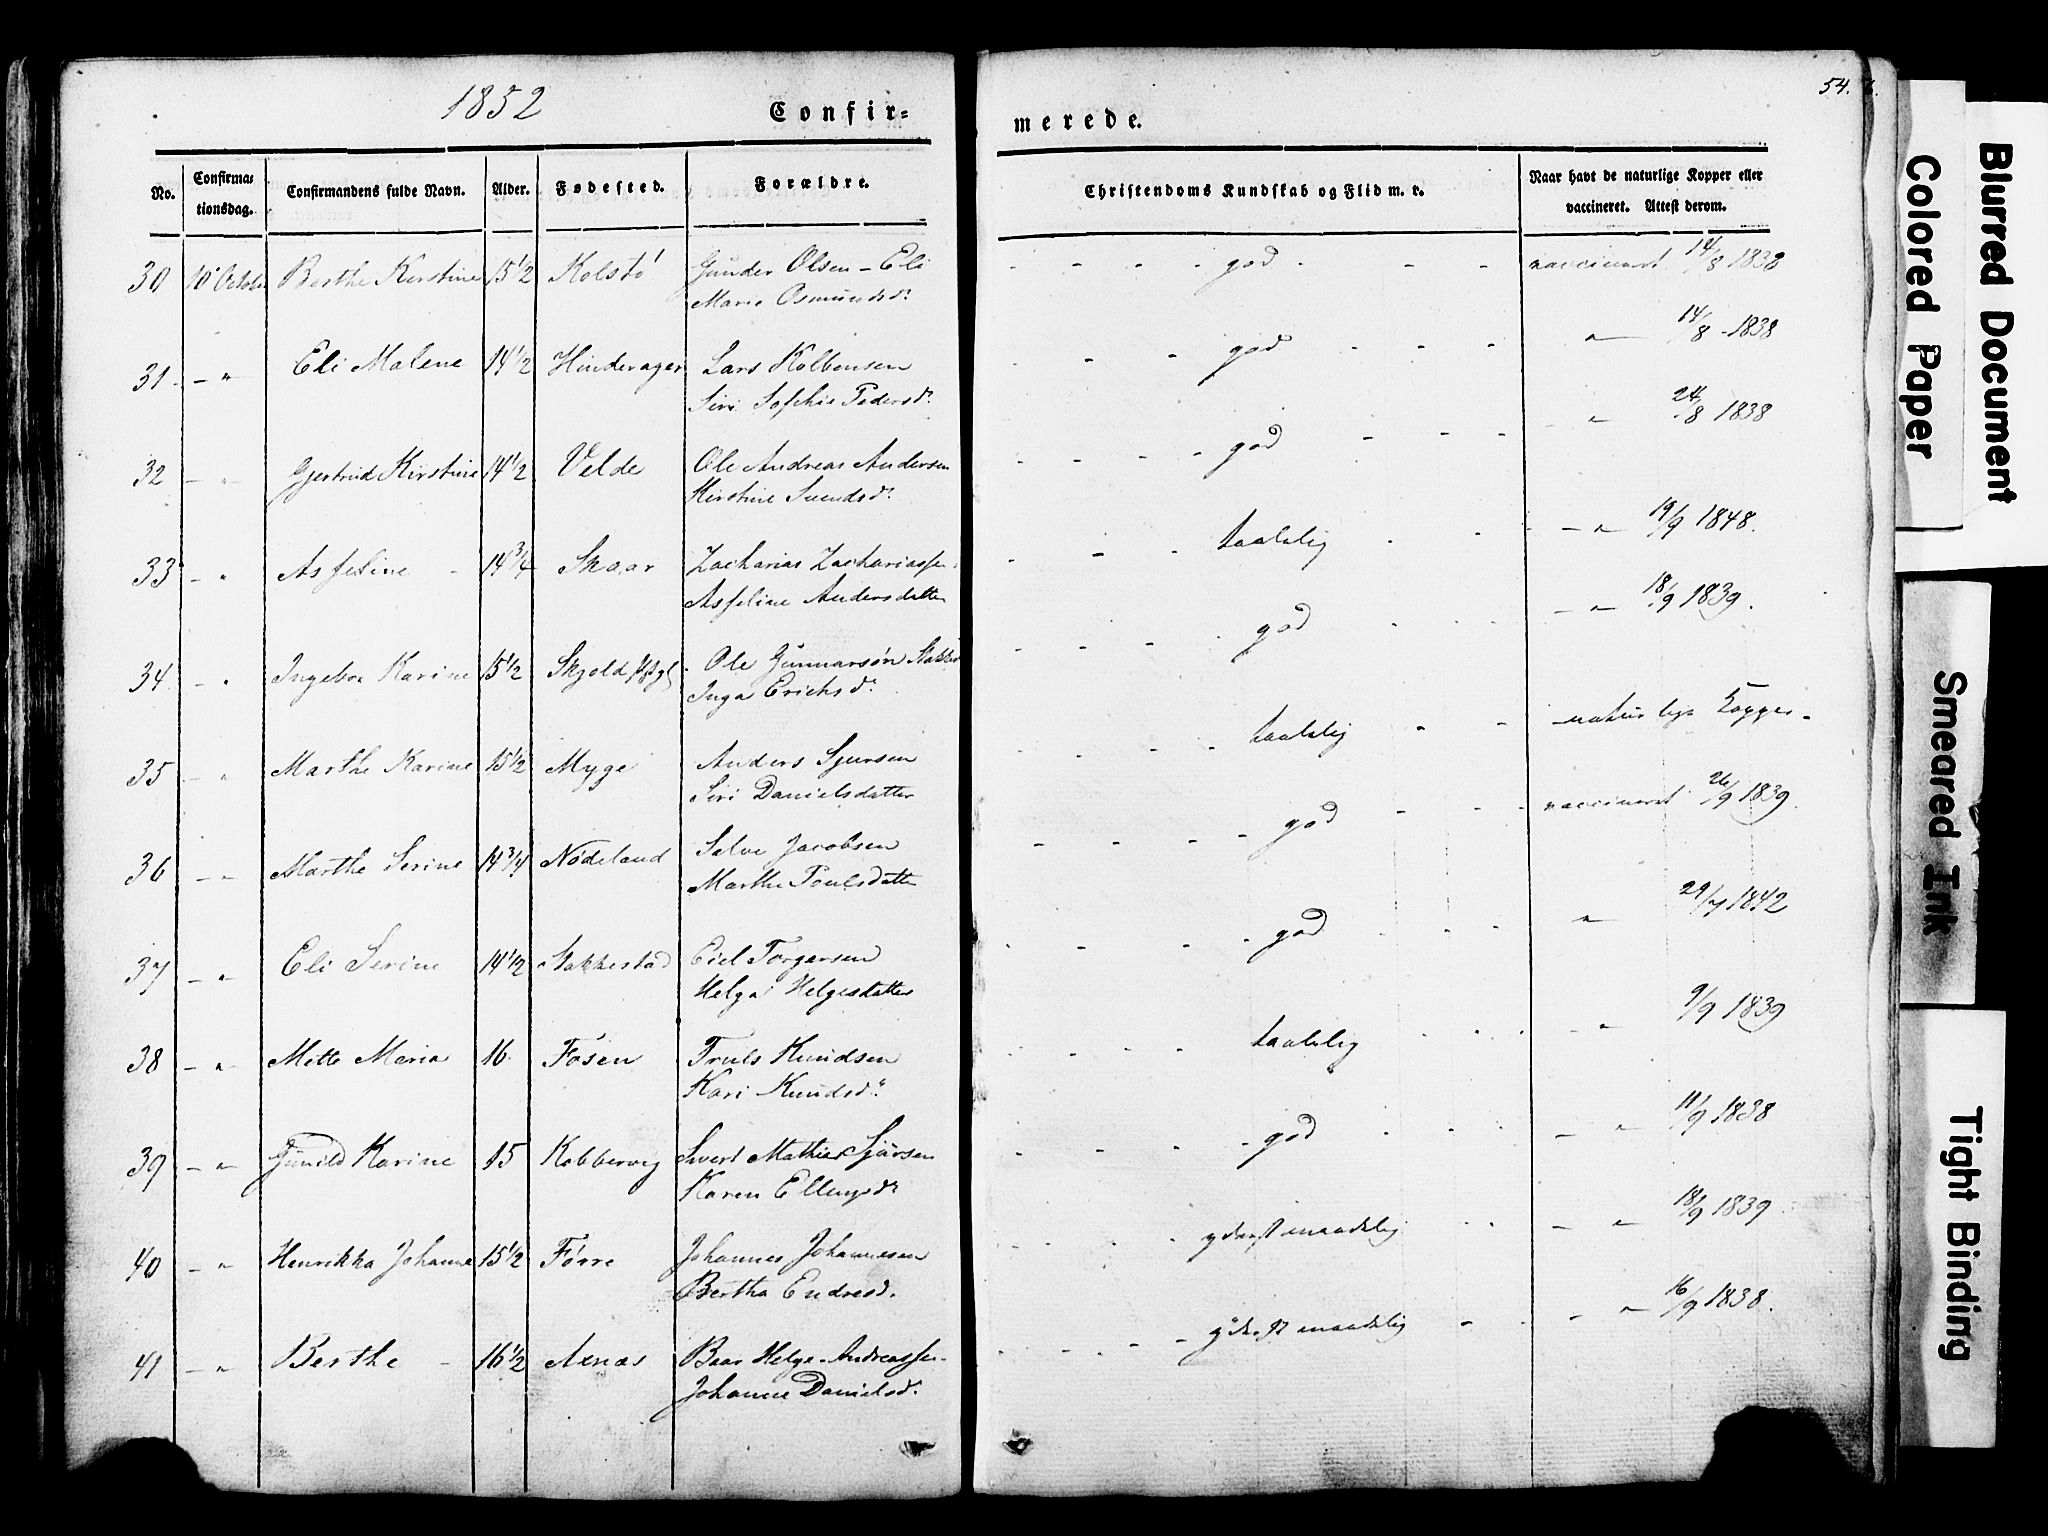 1852
Confir=
merede.
54.
No.
Confirma=
tionsdag.
Confirmandens fulde Navn.
Alder.
Fødested.
Forældre.
Christendoms Kundskab og Flid m. v.
Naar havt de naturlige Kopper eller
vaccineret. Attest derom.
30 10 Octobe Berthe Kirstine 15 1/2 Kolstø Gunder Olsen - Eli - - - god - - - vaccineret 14/8 1838
Marie Osmundsd.
31 - " Eli Malene 14 1/2 Hinderager Lars Kolbensen - - - god - - - " 14/8 - 1838
Siri Sophie Pedersd.
32 - " Gjertrud Kirstine 14 1/2 Velde Ole Andreas Andersen - - - god - - - " 24/8 1838
Kirstine Svendsd.
33 - " Asseline - 14 3/4 Skaar Zacharias Zachariassen - - - taalelig - - - " 19/9 1848.
Asseline Andersdatter
34 - " Ingebor Karine 15 1/2 Skjold Ole Gunnarsøn - - - god - - - " 18/9 1839.
Inga Erichsd.
35 - " Marthe Karine 15 1/2 Myge Anders Sjursen - - - taalelig - - naturlige Kopper.
Siri Danielsdatter
36 - " Marthe Serine 14 3/4 Nødeland Salve Jacobsen - - - god - - - vaccineret 26/9 1839.
Marthe Poulsdatter
37 - " Eli Serine 14 1/2 Stakkestad Eiel Torgersen - - - god - - - " 29/7 1842
Helga Helgesdatter
38 - " Mette Maria 16 Fosen Truls Knudsen - - - taalelig - - - " 9/9 1839
Kari Knudsd.
39 - " Gunild Karine 15 Kobbervig Sivert Mathias Sjursen - - - god - - - " 11/9 1838
Karen Ellingsd.
40 - " Henrikka Johanne 15 1/2 Førre Johannes Johannesen - - - yderst maadelig - - - " 18/9 1839.
Bertha Endresd.
41 - " Berthe - 16 1/2 Axnæs Baar Helge Andreassen - - - yderst maadelig - - - " 16/9 1838.
Johanne Danielsd.
Blurred Document
Colored Paper
Smeared Ink
Tight Binding